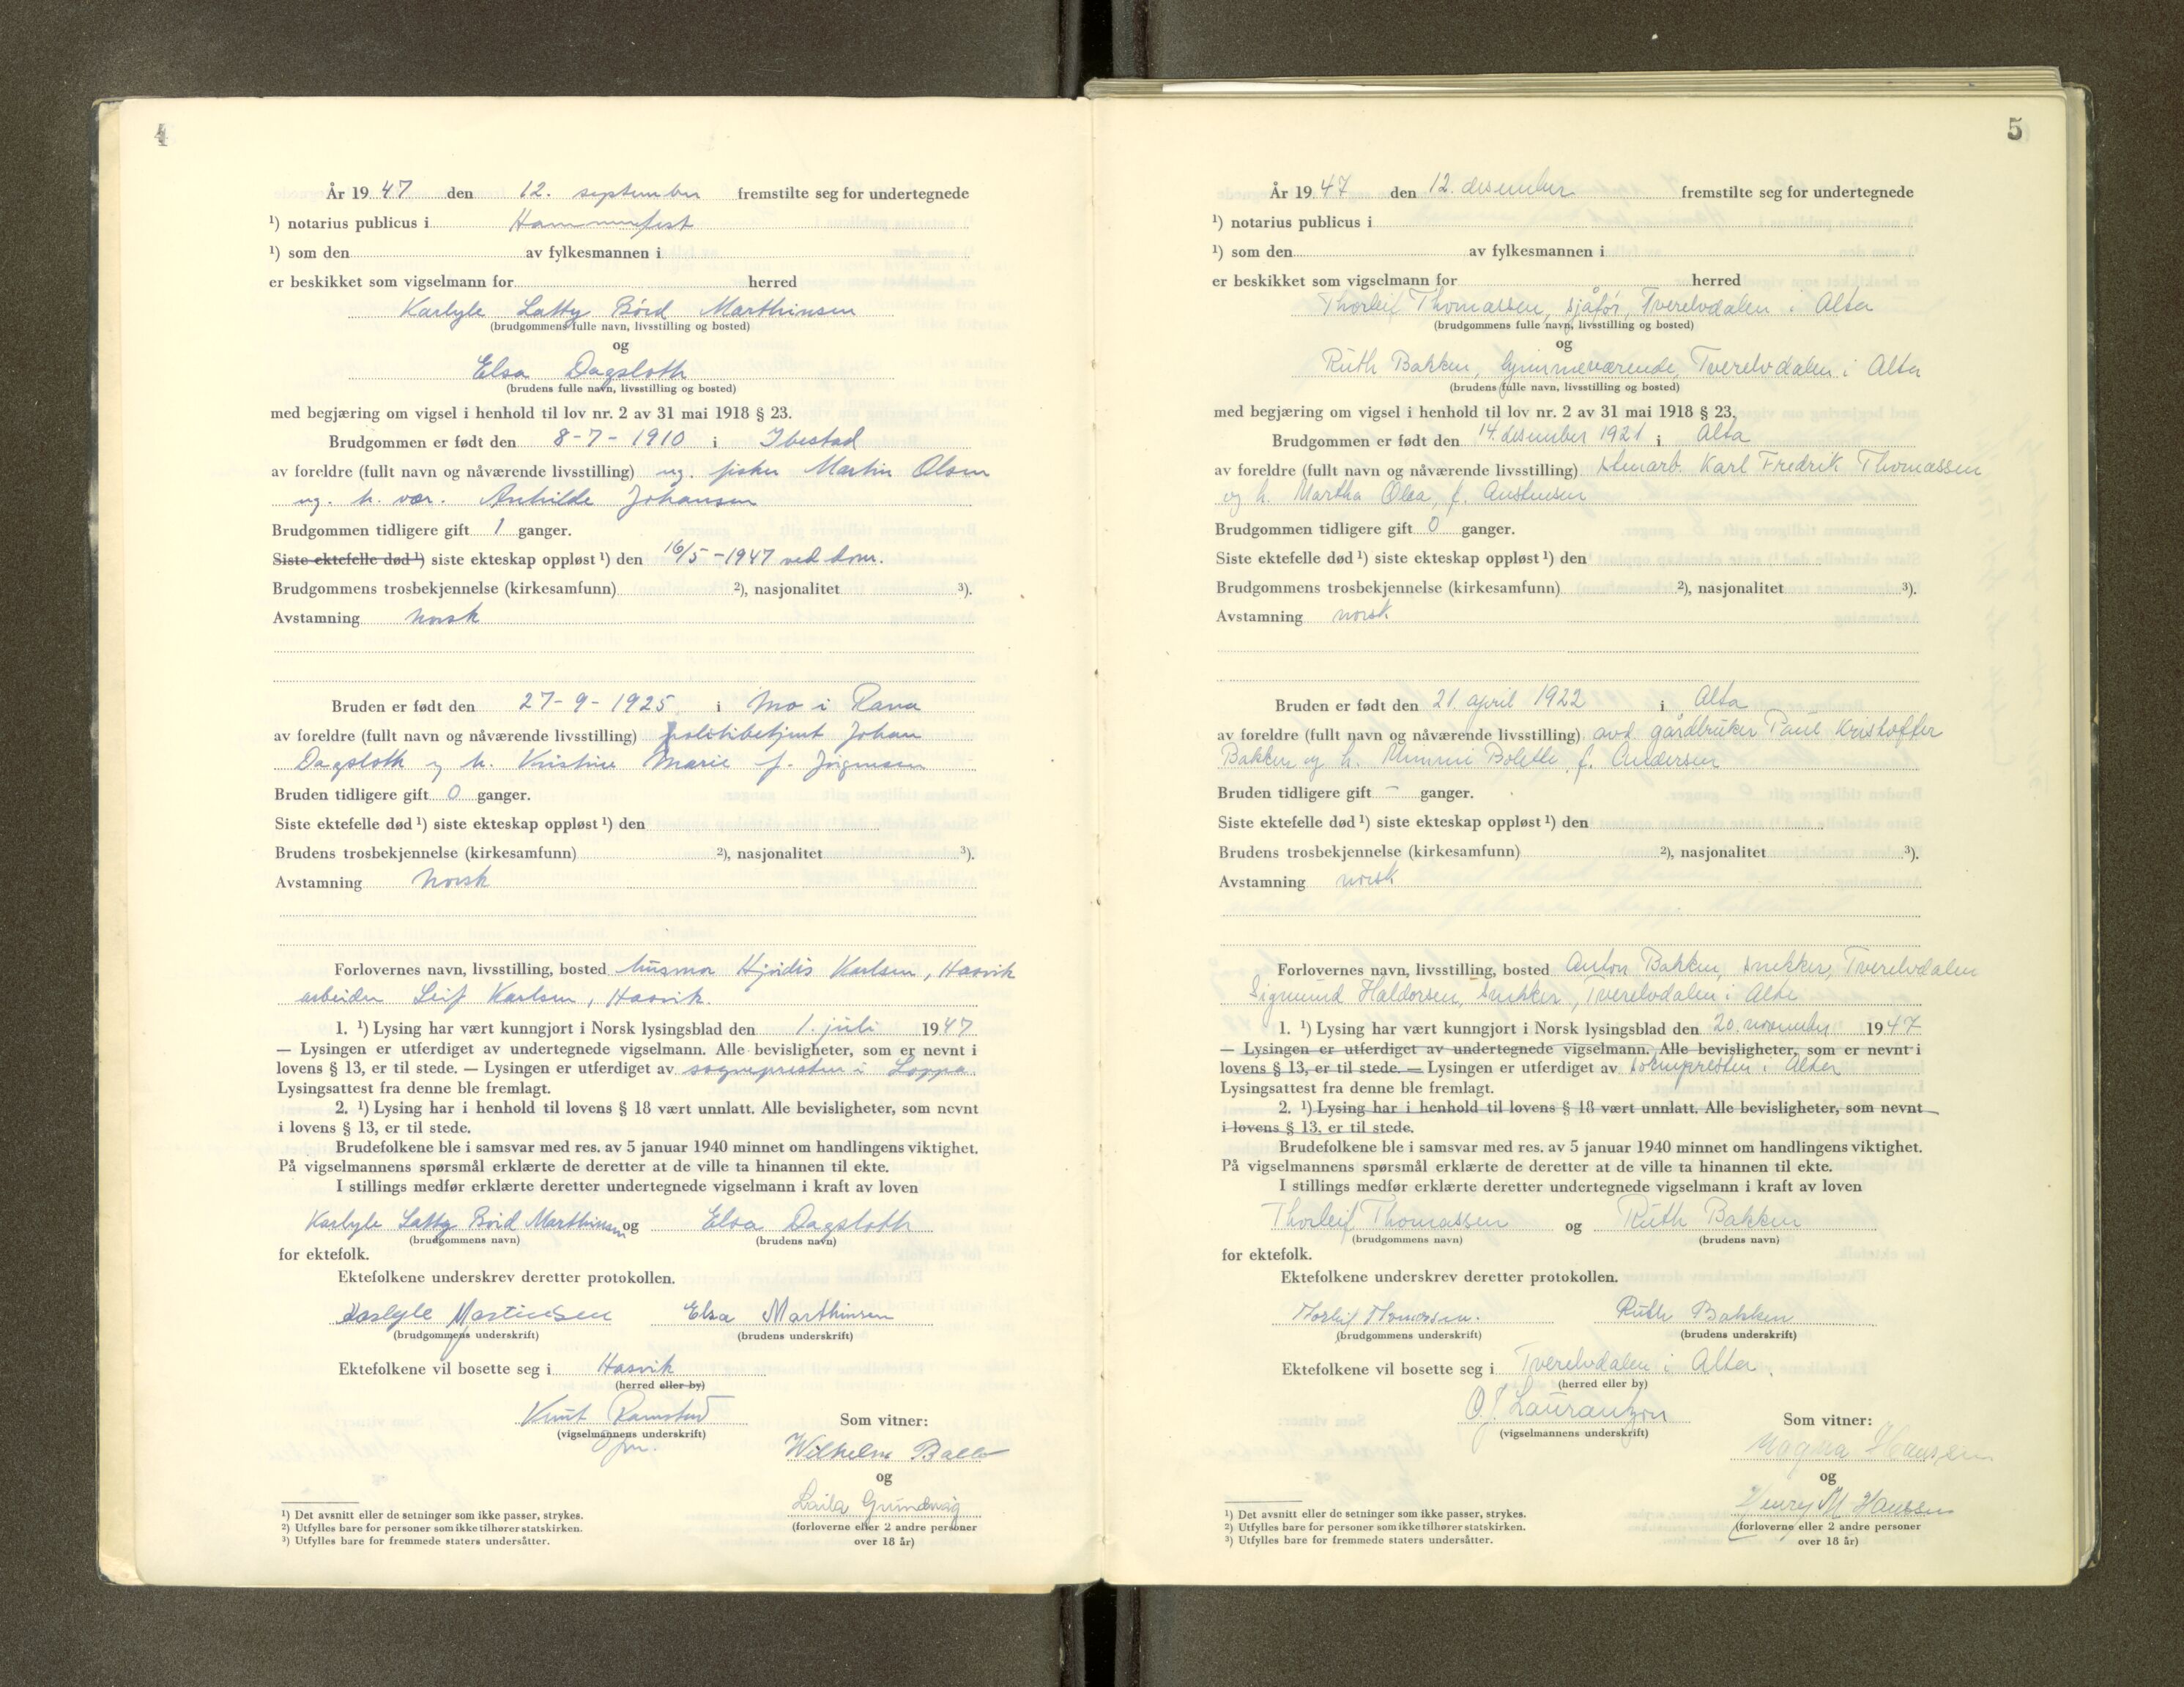 4
År 1947 den 12. september fremstilte seg for undertegnede
¹) notarius publicus i Hammerfest
¹) som den av fylkesmannen i
er beskikket som vigselmann for herred
Karlyle Latty Boid Marthinsen
(brudgommens fulle navn, livsstilling og bosted)
og
Elsa Dagsloth
(brudens fulle navn, livsstilling og bosted)
med begjæring om vigsel i henhold til lov nr. 2 av 31 mai 1918 § 23.
Brudgommen er født den 8-7-1910 i Ibestad
av foreldre (fullt navn og nåværende livsstilling) ug. fisker Martin Olsen
ug. h. vær. Anhilde Johansen
Brudgommen tidligere gift 1 ganger.
Siste ektefelle død ¹) siste ekteskap oppløst ¹) den 16/5-1947 ved dom.
Brudgommens trosbekjennelse (kirkesamfunn) ²), nasjonalitet ³).
Avstamning norsk
Bruden er født den 27-9-1925 i Mo i Rana
av foreldre (fullt navn og nåværende livsstilling) politibetjent Johan
Dagsloth og h. Kristine Marie f. Jørgensen
Bruden tidligere gift 0 ganger.
Siste ektefelle død ¹) siste ekteskap oppløst ¹) den
Brudens trosbekjennelse (kirkesamfunn) ²), nasjonalitet ³).
Avstamning Norsk
Forlovernes navn, livsstilling, bosted husmor Hjørdis Karlsen, Hasvik
arbeider Leif Karlsen, Hasvik.
1. ¹) Lysing har vært kunngjort i Norsk lysingsblad den 1. juli 1947
— Lysingen er utferdiget av undertegnede vigselmann. Alle bevisligheter, som er nevnt i
lovens § 13, er til stede. — Lysingen er utferdiget av sognepresten i Loppa
Lysingsattest fra denne ble fremlagt.
2. ¹) Lysing har i henhold til lovens § 18 vært unnlatt. Alle bevisligheter, som nevnt
i lovens § 13, er til stede.
Brudefolkene ble i samsvar med res. av 5 januar 1940 minnet om handlingens viktighet.
På vigselmannens spørsmål erklærte de deretter at de ville ta hinannen til ekte.
I stillings medfør erklærte deretter undertegnede vigselmann i kraft av loven
Karlyle Latty Boid Marthinsen og Elsa Dagsloth
(brudgommens navn) (brudens navn)
for ektefolk.
Ektefolkene underskrev deretter protokollen.
Karlyle Martinsen Elsa Marthinsen
(brudgommens underskrift) (brudens underskrift)
Ektefolkene vil bosette seg i Hasvik
(herred eller by)
Knut Ramstad
(vigselmannens underskrift)
Som vitner:
Wilhelm Ballo
og
Laila Grundvåg
(forloverne eller 2 andre personer
over 18 år)
¹) Det avsnitt eller de setninger som ikke passer, strykes.
²) Utfylles bare for personer som ikke tilhører statskirken.
³) Utfylles bare for fremmede staters undersåtter.
5
År 1947 den 12. desember fremstilte seg for undertegnede
¹) notarius publicus i
¹) som den av fylkesmannen i
er beskikket som vigselmann for herred
Thorleif Thomassen, sjåfør, Tverelvdalen i Alta
(brudgommens fulle navn, livsstilling og bosted)
og
Ruth Bakken, hjemmeværende, Tverelvdalen i Alta
(brudens fulle navn, livsstilling og bosted)
med begjæring om vigsel i henhold til lov nr. 2 av 31 mai 1918 § 23.
Brudgommen er født den 14. desember 1921 i Alta
av foreldre (fullt navn og nåværende livsstilling) stenarb. Karl Fredrik Thomassen
og h. Martha Olea, f. Austensen
Brudgommen tidligere gift 0 ganger.
Siste ektefelle død ¹) siste ekteskap oppløst ¹) den
Brudgommens trosbekjennelse (kirkesamfunn) ²), nasjonalitet ³).
Avstamning norsk
Bruden er født den 21 april 1922 i Alta
av foreldre (fullt navn og nåværende livsstilling) avd gårdbruker Paul Kristoffer
Bakken og h. Mimmi Bolette f. Andersen
Bruden tidligere gift - ganger.
Siste ektefelle død ¹) siste ekteskap oppløst ¹) den
Brudens trosbekjennelse (kirkesamfunn) ²), nasjonalitet ³).
Avstamning norsk
Forlovernes navn, livsstilling, bosted Anton Bakken, snekker, Tverelvdalen
Sigmund Haldorsen, snekker, Tverelvdalen i Alta
1. ¹) Lysing har vært kunngjort i Norsk lysingsblad den 20. november 1947
— Lysingen er utferdiget av undertegnede vigselmann. Alle bevisligheter, som er nevnt i
lovens § 13, er til stede. — Lysingen er utferdiget av sognepresten i Alta
Lysingsattest fra denne ble fremlagt.
2. ¹) Lysing har i henhold til lovens § 18 vært unnlatt. Alle bevisligheter, som nevnt
i lovens § 13, er til stede.
Brudefolkene ble i samsvar med res. av 5 januar 1940 minnet om handlingens viktighet.
På vigselmannens spørsmål erklærte de deretter at de ville ta hinannen til ekte.
I stillings medfør erklærte deretter undertegnede vigselmann i kraft av loven
Thorleif Thomassen og Ruth Bakken
(brudgommens navn) (brudens navn)
for ektefolk.
Ektefolkene underskrev deretter protokollen.
Thorleif Thomassen. Ruth Bakken
(brudgommens underskrift) (brudens underskrift)
Ektefolkene vil bosette seg i Tverelvdalen i Alta
(herred eller by)
O. J. Laurantzon
(vigselmannens underskrift)
Som vitner:
Magna Hansen
og
Henry M Hansen
(forloverne eller 2 andre personer
over 18 år)
¹) Det avsnitt eller de setninger som ikke passer, strykes.
²) Utfylles bare for personer som ikke tilhører statskirken.
³) Utfylles bare for fremmede staters undersåtter.